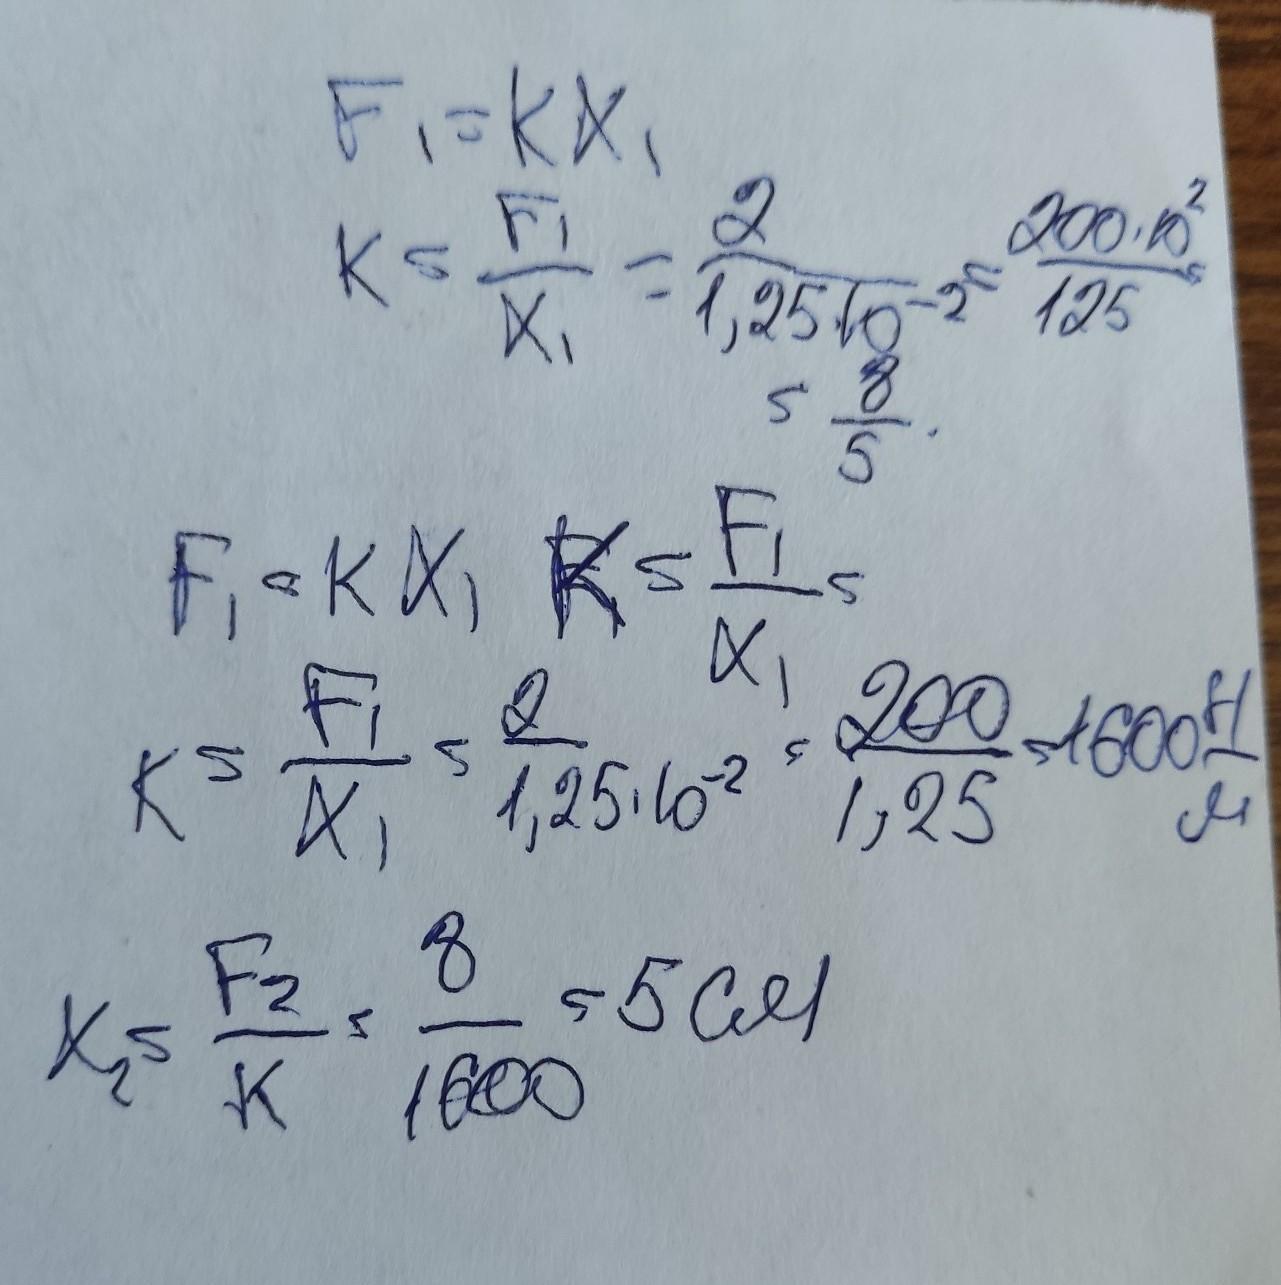 F₁ = KX₁
K = F₁/X₁ = 2/1,25·10⁻² = 200·10²/125 =
= 8/5.
F₁ = KX₁ K = F₁/X₁ =
K = F₁/X₁ = 2/1,25·10⁻² = 200/1,25 = 1600 Н/м
X₂ = F₂/K = 8/1600 = 5 см